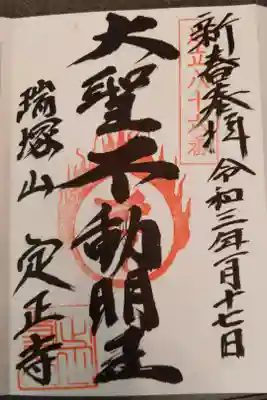 新春奉拝 令和三年一月十七日
大聖不動明王
瑞塚山 定正寺